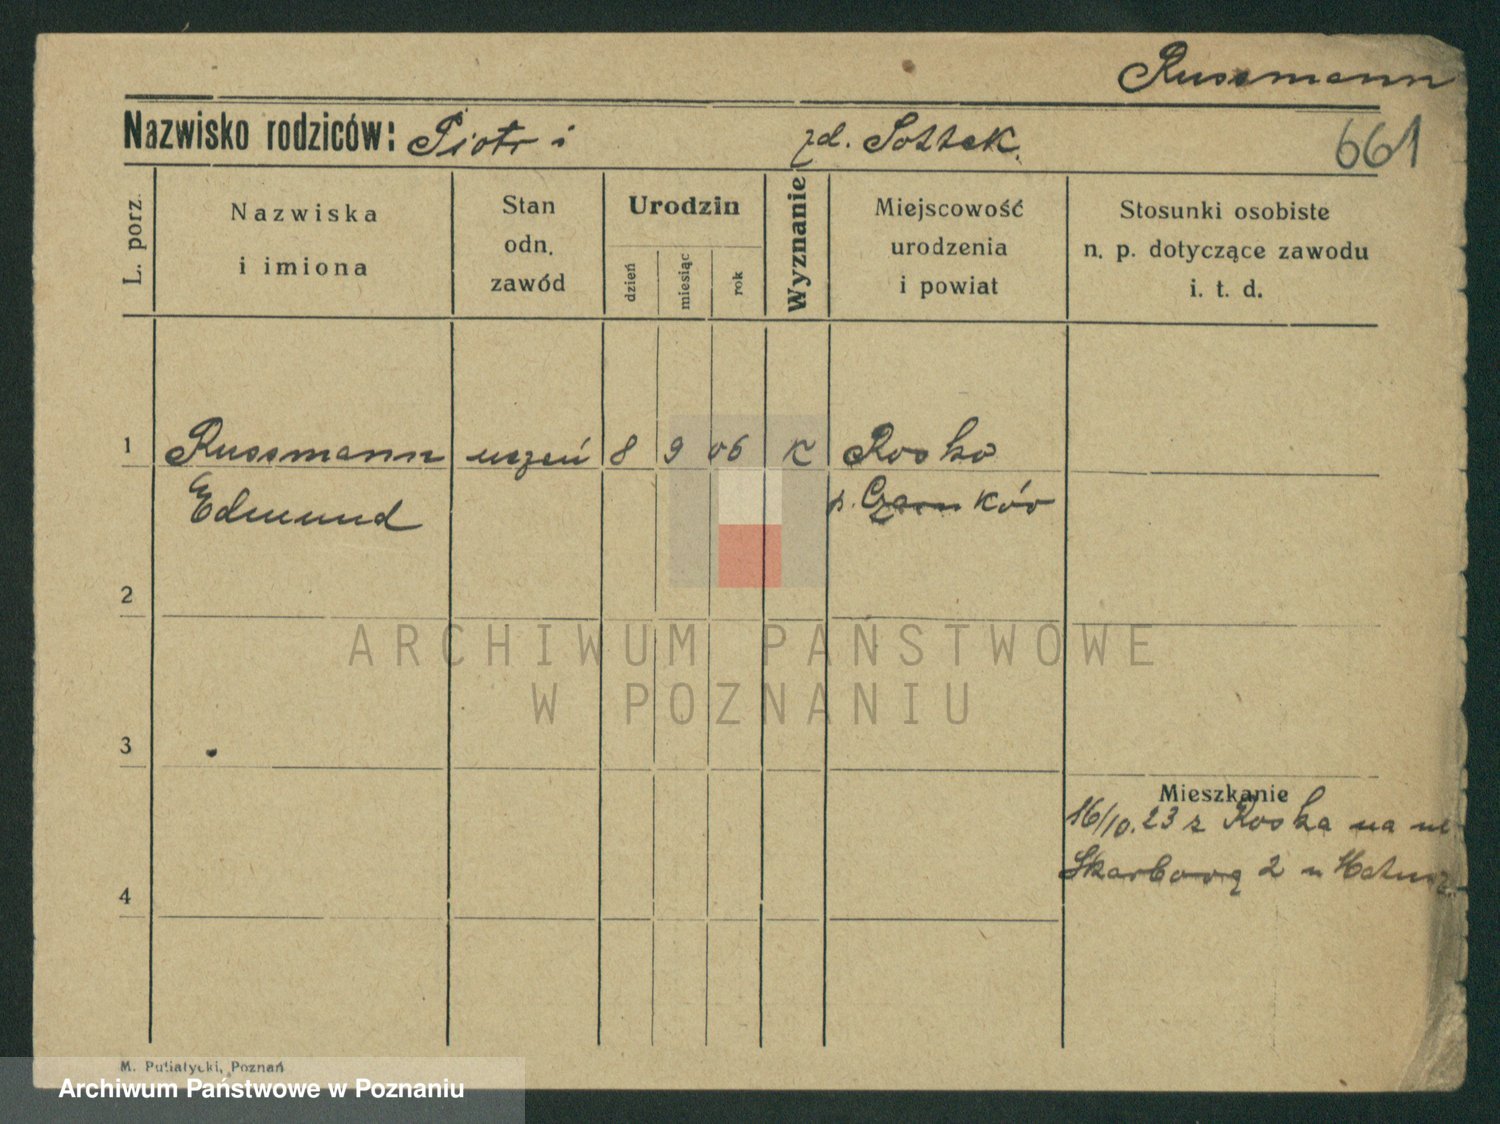 Russmann
Nazwisko rodziców: Piotr i zd. Sottek.
661
L. porz.
Nazwiska
i imiona
Stan
odn.
zawód
Urodzin
dzień
miesiąc
rok
Wyznanie
Miejscowość
urodzenia
i powiat
Stosunki osobiste
n. p. dotyczące zawodu
i. t. d.
1 Russmann uczeń 8 9 06 K Rosko
Edmund p. Czarnków
2
3
Mieszkanie
16/10.23 z Roska na ul
Skarbową 2 u
4
M. Putiatycki, Poznań
ARCHIWUM PAŃSTWOWE
W POZNANIU
Archiwum Państwowe w Poznaniu